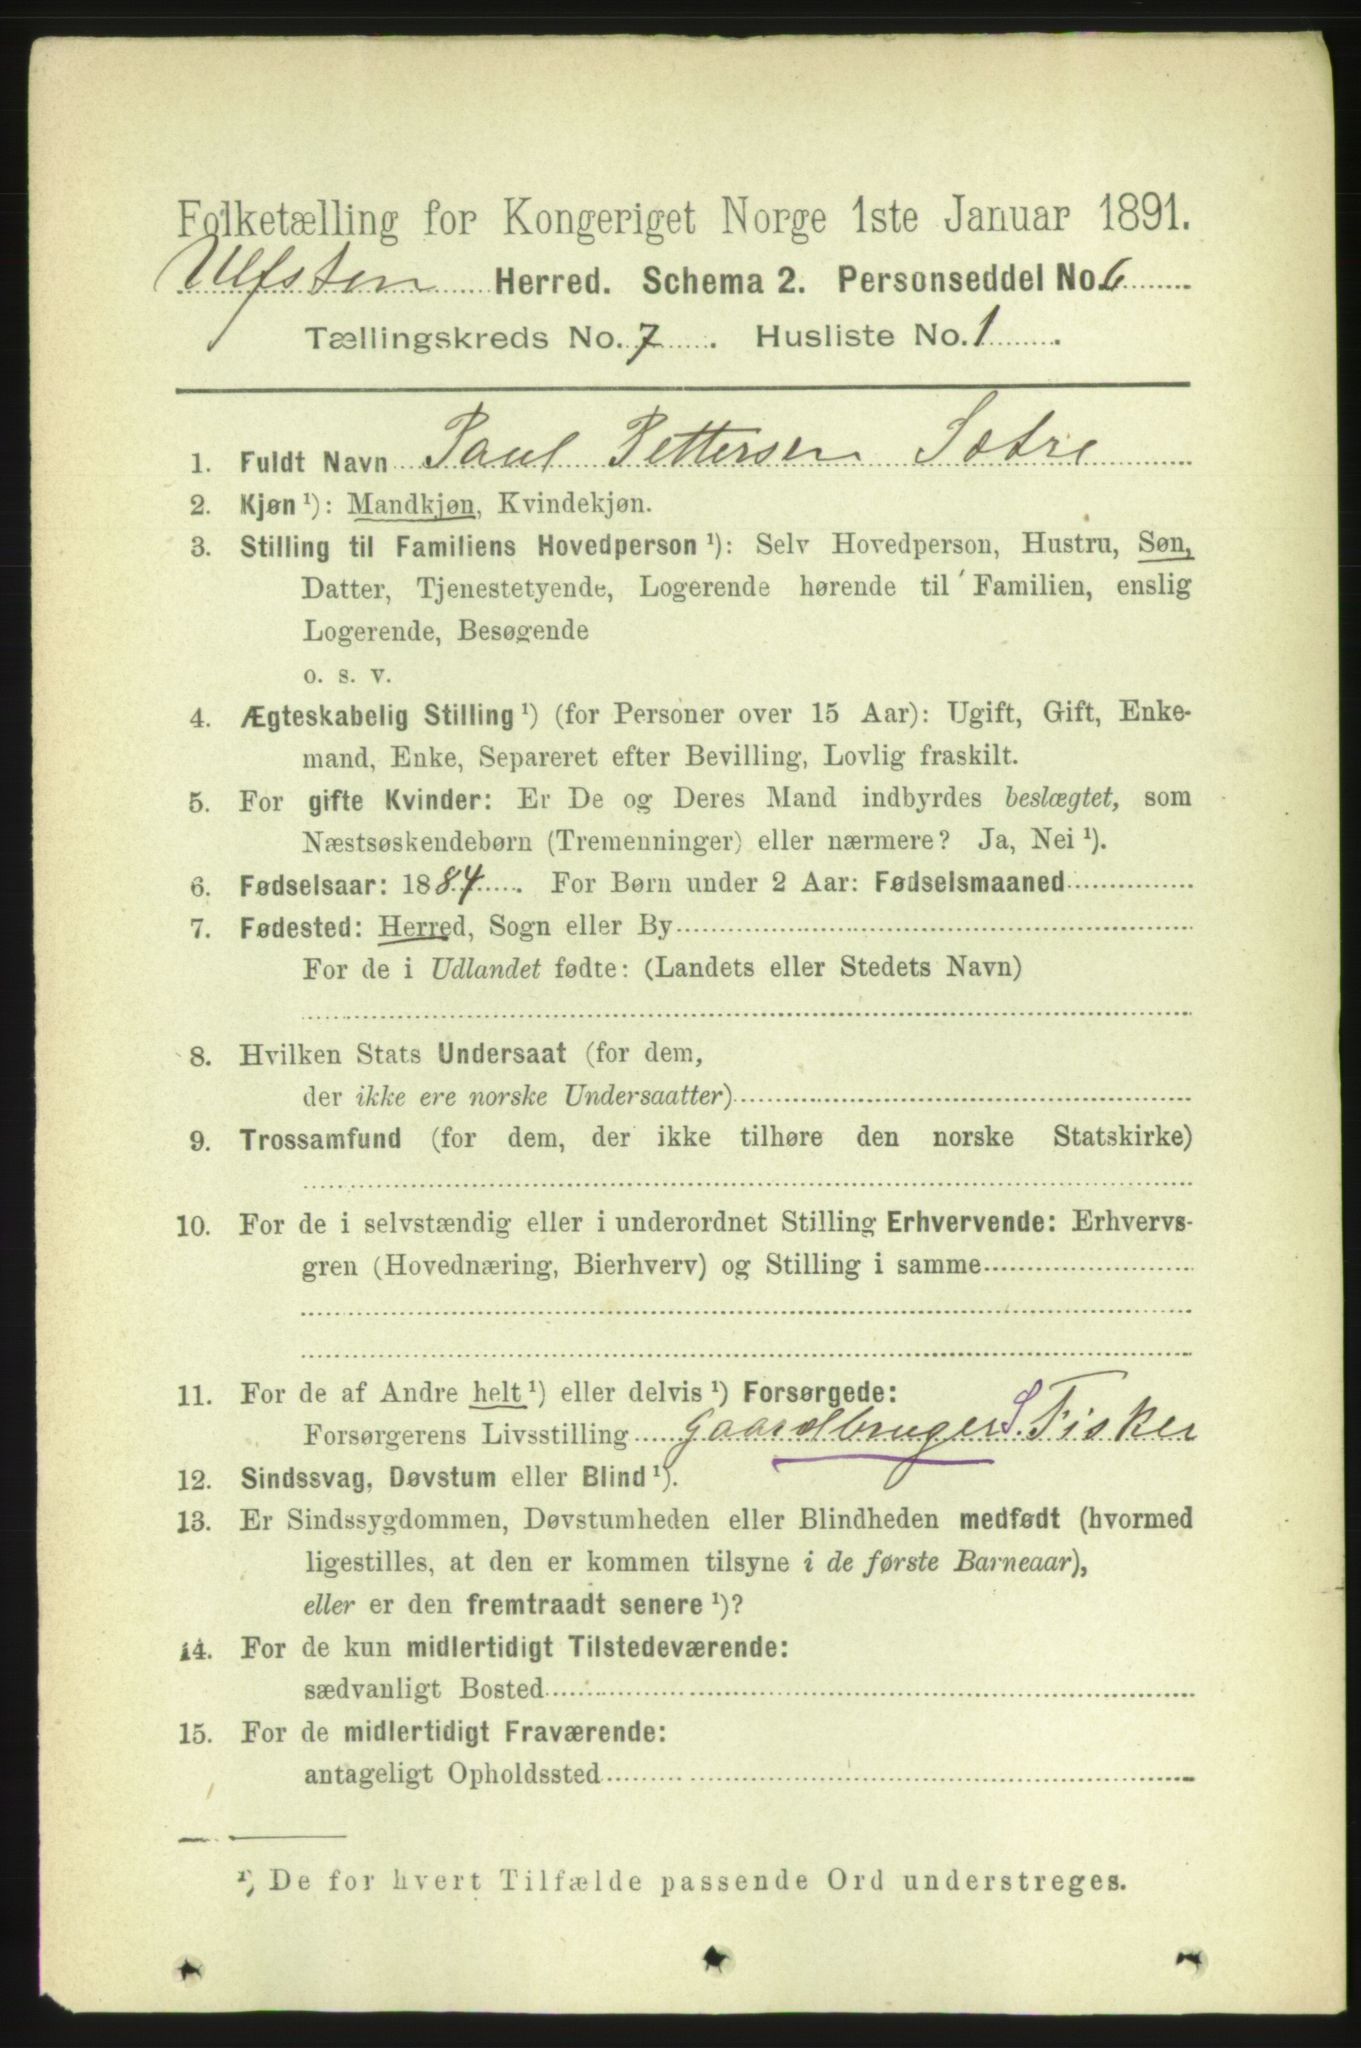 Folketælling for Kongeriget Norge 1ste Januar 1891.
Ulfsten Herred. Schema 2. Personseddel No. 6
Tællingskreds No. 7. Husliste No. 1.
1. Fuldt Navn Paul Pettersen Sætre
2. Kjøn ¹): Mandkjøn, Kvindekjøn.
3. Stilling til Familiens Hovedperson ¹): Selv Hovedperson, Hustru, Søn,
Datter, Tjenestetyende, Logerende hørende til Familien, enslig
Logerende, Besøgende
o. s. v.
4. Ægteskabelig Stilling ¹) (for Personer over 15 Aar): Ugift, Gift, Enke-
mand, Enke, Separeret efter Bevilling, Lovlig fraskilt.
5. For gifte Kvinder: Er De og Deres Mand indbyrdes beslægtet, som
Næstsøskendebørn (Tremenninger) eller nærmere? Ja, Nei ¹).
6. Fødselsaar: 1884. For Børn under 2 Aar: Fødselsmaaned
7. Fødested: Herred, Sogn eller By
For de i Udlandet fødte: (Landets eller Stedets Navn)
8. Hvilken Stats Undersaat (for dem,
der ikke ere norske Undersaatter)
9. Trossamfund (for dem, der ikke tilhøre den norske Statskirke)
10. For de i selvstændig eller i underordnet Stilling Erhvervende: Erhvervs-
gren (Hovednæring, Bierhverv) og Stilling i samme
11. For de af Andre helt ¹) eller delvis ¹) Forsørgede:
Forsørgerens Livsstilling gaardbruger S. Fisker
12. Sindssvag, Døvstum eller Blind ¹).
13. Er Sindssygdommen, Døvstumheden eller Blindheden medfødt (hvormed
ligestilles, at den er kommen tilsyne i de første Barneaar),
eller er den fremtraadt senere ¹)?
14. For de kun midlertidigt Tilstedeværende:
sædvanligt Bosted
15. For de midlertidigt Fraværende:
antageligt Opholdssted
¹) De for hvert Tilfælde passende Ord understreges.